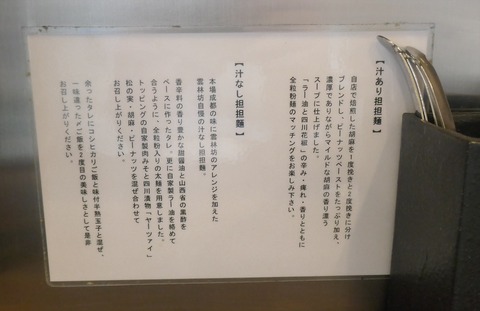 【汁あり担担麺】
自店で焙煎した胡麻を1度挽きと2度挽きに分け
ブレンドし、ピーナッツペーストをたっぷり加え、
濃厚でありながらマイルドな胡麻の香り漂う
スープに仕上げました。
「ラー油と四川花椒」の辛み・痺れ・香りとともに
全粒粉麺のマッチングをお楽しみ下さい。
【汁なし担担麺】
本場成都の味に雲林坊のアレンジを加えた
雲林坊自慢の汁なし担担麺。
香辛料の香り豊かな甜醤油と山西省の黒酢を
ベースに作ったタレ。更に自家製ラー油を絡めて
合うように、全粒粉入りの太麺を用意しました。
トッピングの自家製肉みそと四川漬物「ヤーツァイ」
松の実・胡麻・ピーナッツを混ぜ合わせて
お召し上がりください。
余ったタレにコシヒカリご飯と味付半熟玉子と混ぜ、
一味違った〆ご飯を2度目の美味しさとして是非
お召し上がりください。